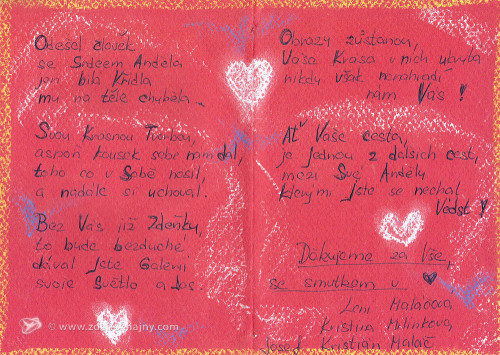 Odešel člověk
se Srdcem Anděla
jen bílá Křídla
mu na těle chyběla.
Svou Krásnou Tvorbou,
aspoň kousek sebe nám dal,
toho co v Sobě nosil,
a nadále si uchoval.
Bez Vás již Zdeňky,
to bude bezduché
dával jste Galerii
svoje Světlo a Jas.
Obrazy zůstanou,
Vaša Krása v nich ukrytá
nikdy však nenahradí
nám Vás!
Ať Vaše cesta,
je jednou z dalších cest,
mezi Své Anděly
kterými jste se nechal
Vést!
Děkujeme za Vše,
se smutkem v
Leni Halabová
Kristina Hlinkova
Josef Kristián Haláč
© www.zd hajny.com